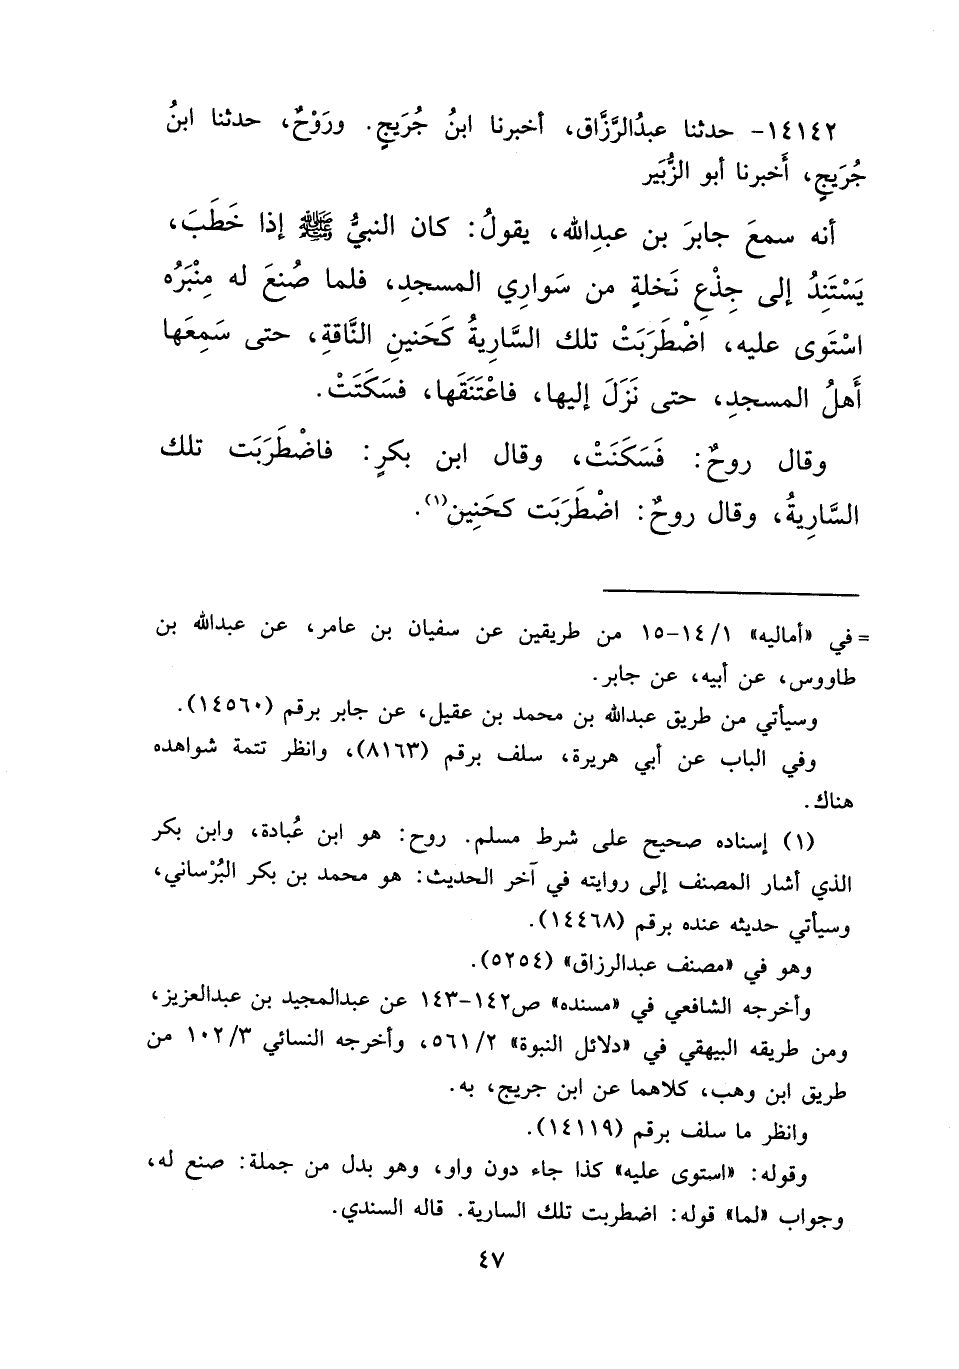 ١٤١٤٢- حدثنا عبدُالرَّزَّاق، أخبرنا ابنُ جُرَيجٍ. ورَوْحٌ، حدثنا ابنُ
جُرَيجٍ، أَخبرنا أبو الزُّبَير
أنه سمعَ جابرَ بن عبدِالله، يقولُ: كان النبيُّ ﷺ إذا خَطَبَ،
يَسْتَنِدُ إلى جِذْعِ نَخلةٍ من سَواري المسجدِ، فلما صُنعَ له مِنْبَرُه
اسْتَوى عليه، اضْطَرَبَتْ تلك السَّاريةُ كَحَنينِ النَّاقةِ، حتى سَمِعَها
أَهلُ المسجدِ، حتى نَزَلَ إليها، فاعْتَنَقَها، فسَكَتَتْ.
وقال روحٌ: فَسَكَنَتْ، وقال ابن بكرٍ: فاضْطَرَبَت تلك
السَّاريةُ، وقال روحٌ: اضْطَرَبَت كحَنِين(١).
= في «أماليه» ١٤/١-١٥ من طريقين عن سفيان بن عامر، عن عبدالله بن
طاووس، عن أبيه، عن جابر.
وسيأتي من طريق عبدالله بن محمد بن عقيل، عن جابر برقم (١٤٥٦٠).
وفي الباب عن أبي هريرة، سلف برقم (٨١٦٣)، وانظر تتمة شواهده
هناك.
(١) إسناده صحيح على شرط مسلم. روح: هو ابن عُبادة، وابن بكر
الذي أشار المصنف إلى روايته في آخر الحديث: هو محمد بن بكر البُرْساني،
وسيأتي حديثه عنده برقم (١٤٤٦٨).
وهو في «مصنف عبدالرزاق» (٥٢٥٤).
وأخرجه الشافعي في «مسنده» ص١٤٢-١٤٣ عن عبدالمجيد بن عبدالعزيز،
ومن طريقه البيهقي في «دلائل النبوة» ٥٦١/٢، وأخرجه النسائي ١٠٢/٣ من
طريق ابن وهب، كلاهما عن ابن جريج، به.
وانظر ما سلف برقم (١٤١١٩).
وقوله: «استوى عليه» كذا جاء دون واو، وهو بدل من جملة: صنع له،
وجواب «لما» قوله: اضطربت تلك السارية. قاله السندي.
٤٧